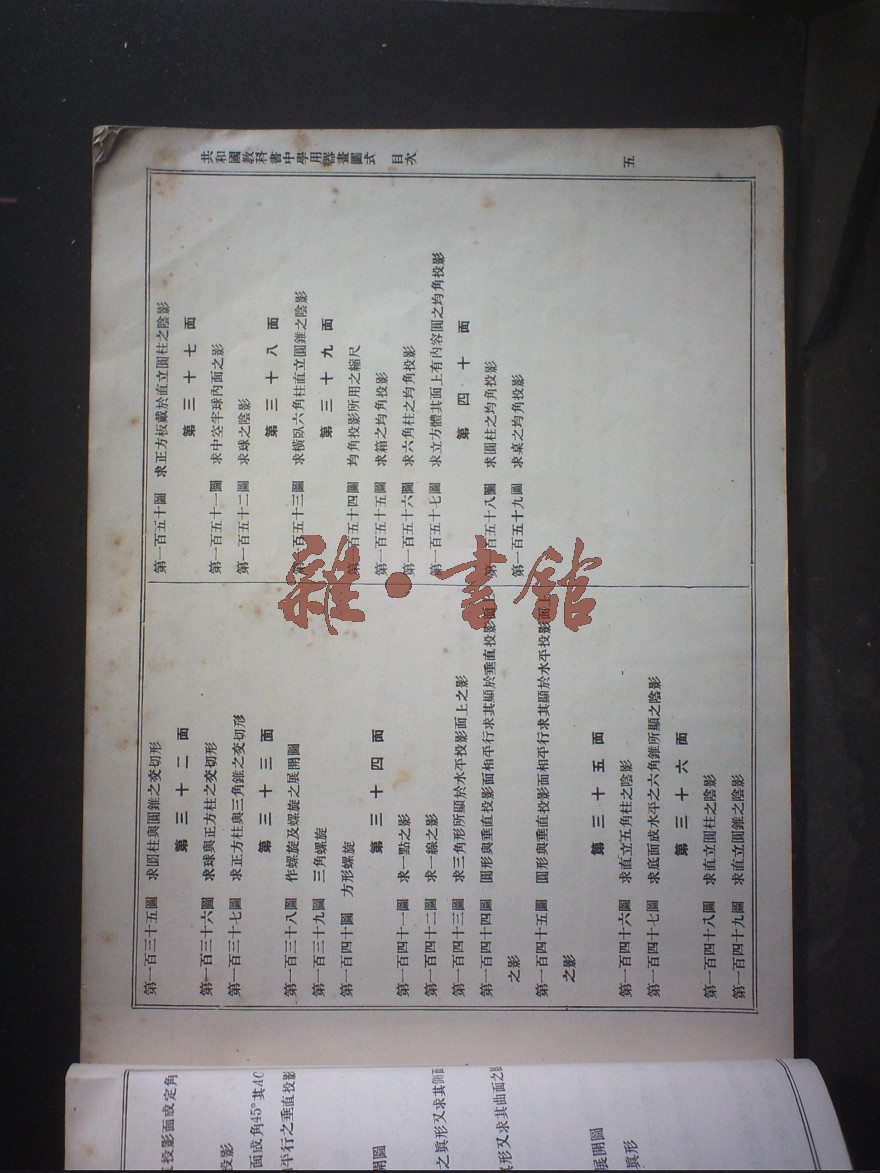 共和國教科書中學用器畫圖式 目次
五
第一百三十五圖 求圓柱與圓錐之交切形
第三十二面
第一百三十六圖 求球與正方柱之交切形
第一百三十七圖 求正方柱與三角錐之交切形
第三十三面
第一百三十八圖 作螺旋及螺旋之展開圖
第一百三十九圖 三角螺旋
第一百四十圖 方形螺旋
第三十四面
第一百四十一圖 求一點之影
第一百四十二圖 求一線之影
第一百四十三圖 求三角形所顯於水平投影面上之影
第一百四十四圖 圓形與垂直投影面相平行求其顯於垂直投影面上
之影
第一百四十五圖 圓形與垂直投影面相平行求其顯於水平投影面上
之影
第三十五面
第一百四十六圖 求直立五角柱之陰影
第一百四十七圖 求底面成水平之六角錐所顯之陰影
第三十六面
第一百四十八圖 求直立圓柱之陰影
第一百四十九圖 求直立圓錐之陰影
第一百五十圖 求正方板戴於直立圓柱之陰影
第三十七面
第一百五十一圖 求中空半球內面之影
第一百五十二圖 求球之陰影
第三十八面
第一百五十三圖 求橫臥六角柱直立圓錐之陰影
第三十九面
第一百五十四圖 均角投影所用之縮尺
第一百五十五圖 求箱之均角投影
第一百五十六圖 求六角柱之均角投影
第一百五十七圖 求立方體其面上有內容圓之均角投影
第四十面
第一百五十八圖 求圓柱之均角投影
第一百五十九圖 求桌之均角投影
投影面成定角
投影
面成角45°其
平行之垂直投影
開圖
之眞形又求其側面
形又求其曲面之
展開圖
眞形